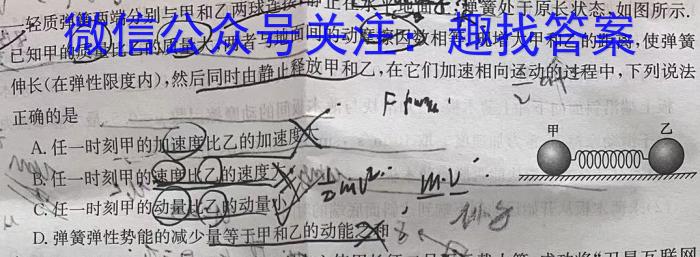 一轻质弹簧两端分别与甲和乙两球连接 静止在水平地面上 弹簧处于原长状态,如图所示.
微信公众号关注：趣找答案
已知甲的质量比乙的质量大,两者与地面间的动摩擦因数相等 增大甲和乙的距离,使弹簧
伸长(在弹性限度内),然后同时由静止释放甲和乙,在它们加速相向运动的过程中,下列说法
正确的是
A. 任一时刻甲的加速度比乙的加速度大
B. 任一时刻甲的速度比乙的速度大
C. 任一时刻甲的动量比乙的动量小
D. 弹簧弹性势能的减少量等于甲和乙的动能之和
甲
乙
½mv²
m·v